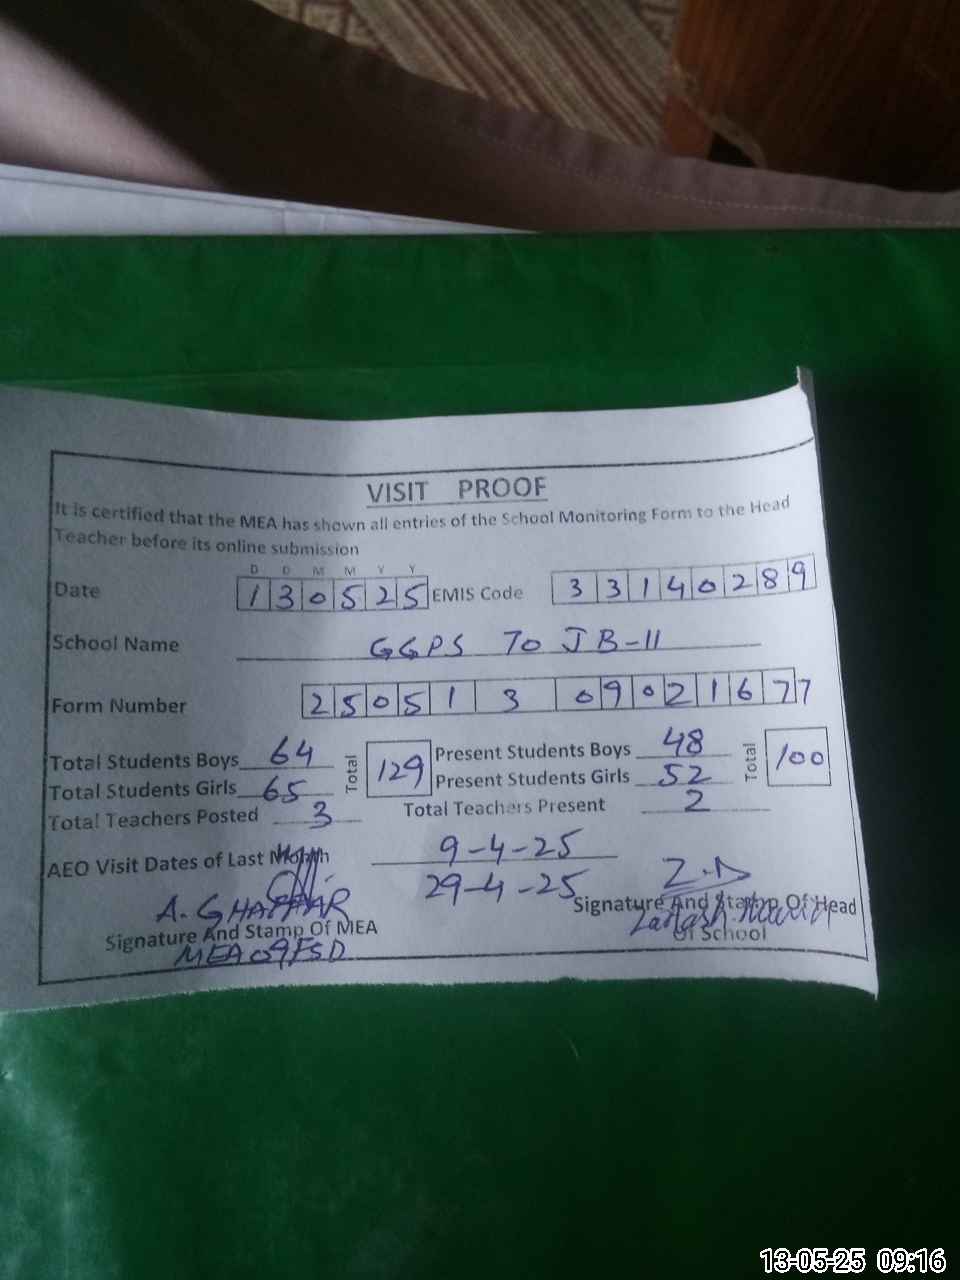 VISIT PROOF
It is certified that the MEA has shown all entries of the School Monitoring Form to the Head
Teacher before its online submission
D D M M Y Y
Date 130525 EMIS Code 33140289
School Name GGPS 70 JB-11
Form Number 2505130902167 7
Total Students Boys 64 Total 129 Present Students Boys 48 Total 100
Total Students Girls 65 Present Students Girls 52
Total Teachers Posted 3 Total Teachers Present 2
AEO Visit Dates of Last Month 9-4-25
29-4-25
A. GHAFFAR
Signature And Stamp Of MEA
MEA 09 FSD
Z.A
Signature And Stamp Of Head
Of School
13-05-25 09:16